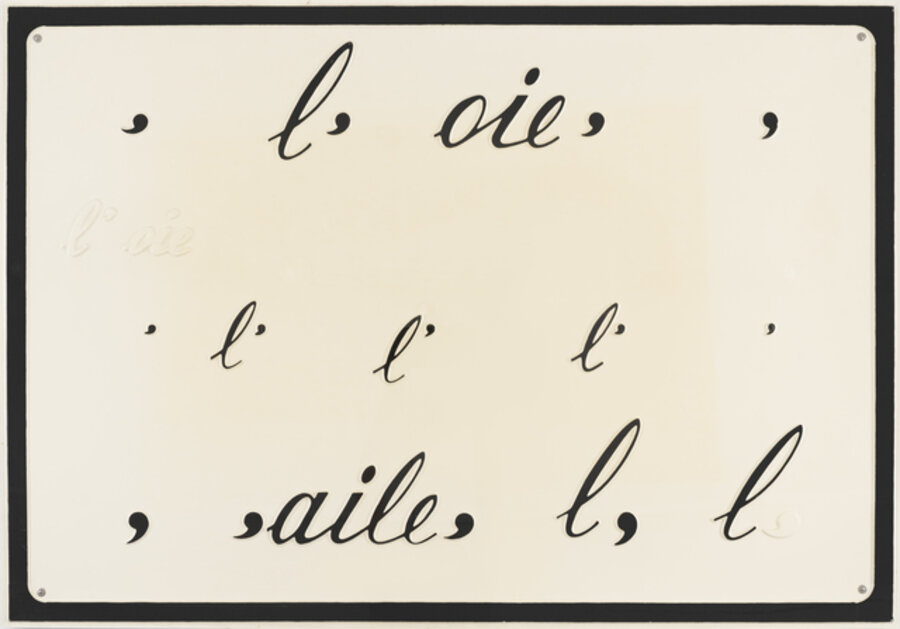 , l, oie, ,
l' oie
' l' l' l' '
, ,aile, l, l,